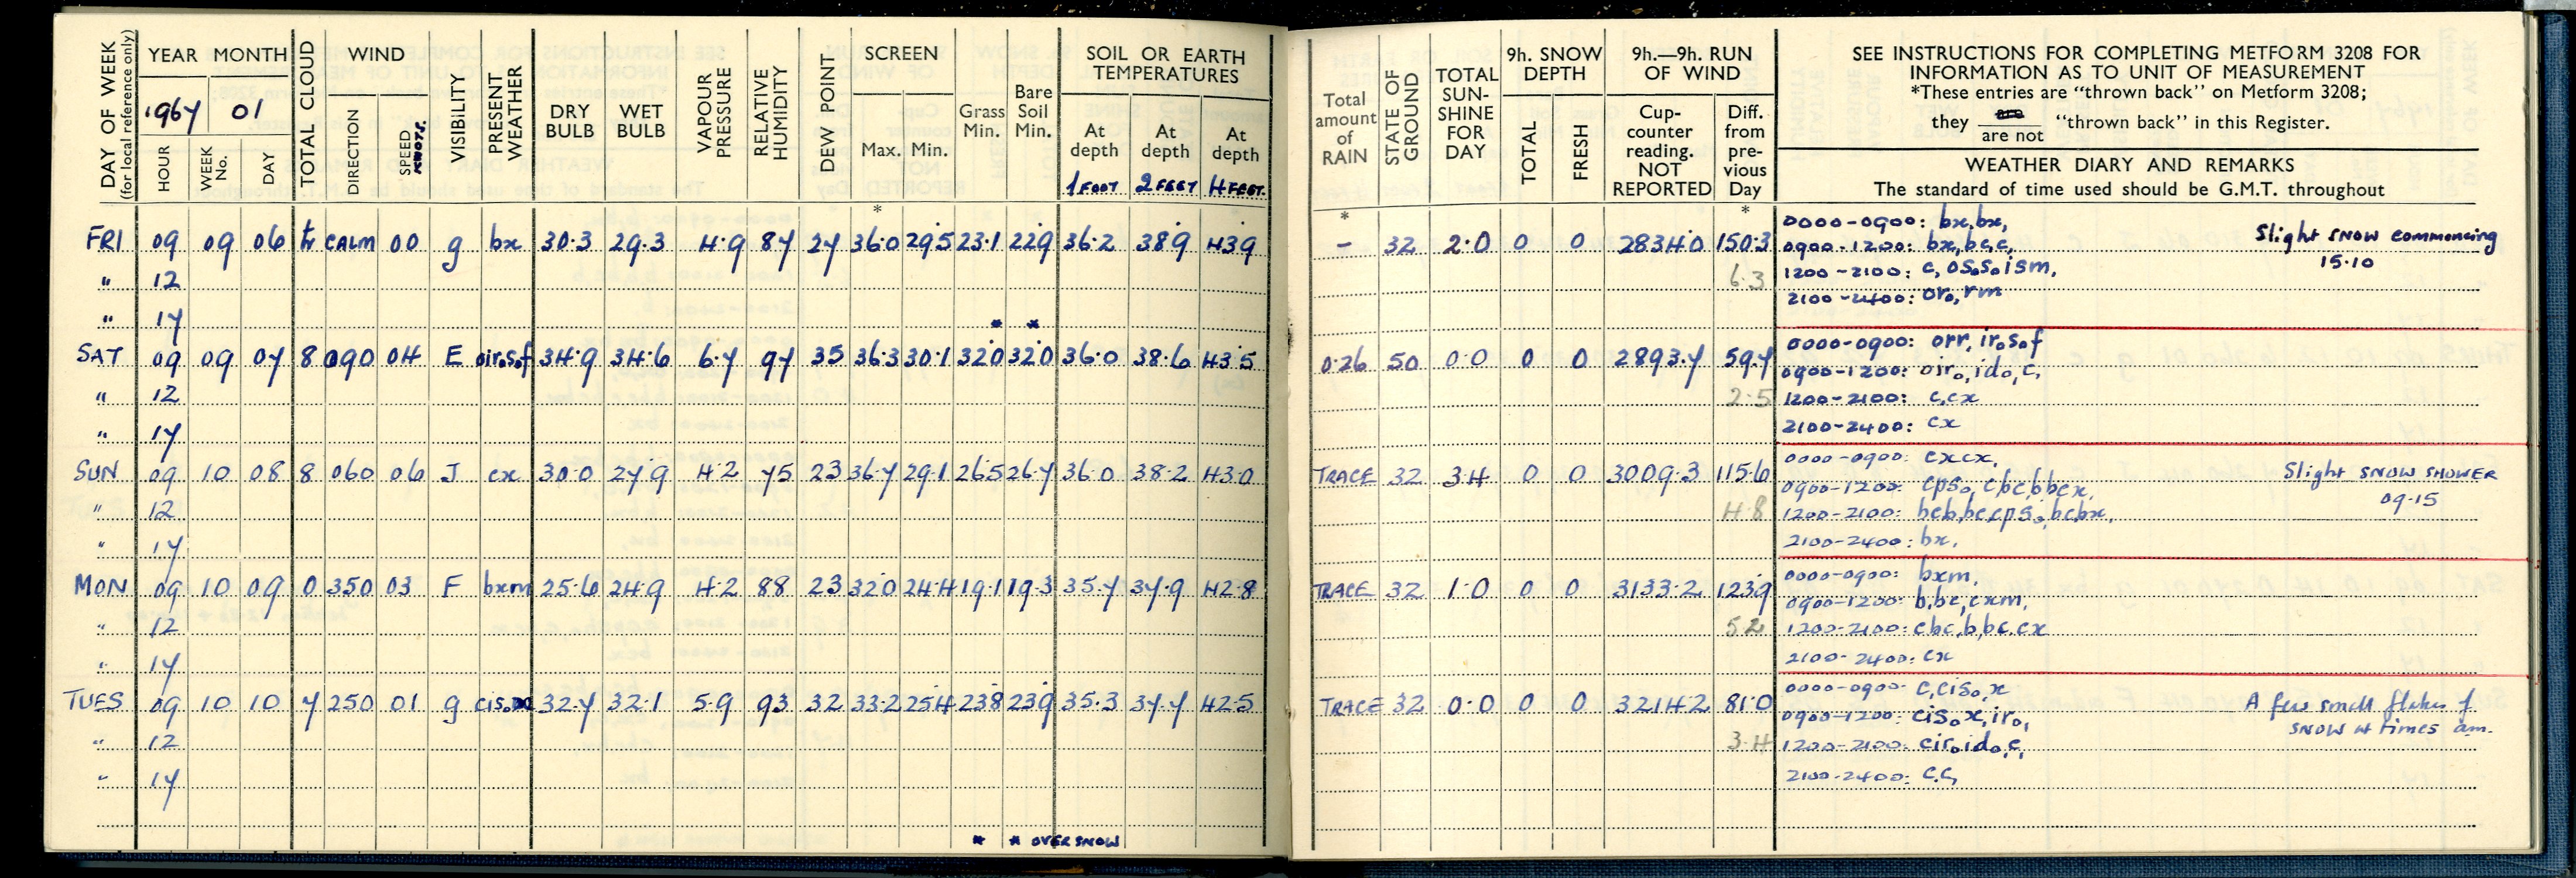 DAY OF WEEK
(for local reference only)
YEAR MONTH
1967 01
HOUR
WEEK No.
DAY
TOTAL CLOUD
WIND
DIRECTION
SPEED KNOTS.
VISIBILITY
PRESENT WEATHER
DRY BULB
WET BULB
VAPOUR PRESSURE
RELATIVE HUMIDITY
DEW POINT
SCREEN
Max. Min.
Grass Min.
Bare Soil Min.
SOIL OR EARTH TEMPERATURES
At depth 1 FOOT
At depth 2 FEET
At depth 4 FEET.
*
FRI 09 09 06 tr CALM 00 g bx 30.3 29.3 4.9 87 27 36.0 29.5 23.1 22.9 36.2 38.9 43.9
" 12
" 17
* *
SAT 09 09 07 8 090 04 E oir₀s₀f 34.9 34.6 6.7 97 35 36.3 30.1 32.0 32.0 36.0 38.6 43.5
" 12
" 17
SUN 09 10 08 8 060 06 J cx 30.0 27.9 4.2 75 23 36.7 29.1 26.5 26.7 36.0 38.2 43.0
" 12
" 17
MON 09 10 09 0 350 03 F bxm 25.6 24.9 4.2 88 23 32.0 24.4 19.1 19.3 35.7 37.9 42.8
" 12
" 17
TUES 09 10 10 7 250 01 g cis₀x 32.7 32.1 5.9 93 32 33.2 25.4 23.8 23.9 35.3 37.7 42.5
" 12
" 17
* * OVER SNOW
Total amount of RAIN
STATE OF GROUND
TOTAL SUN-SHINE FOR DAY
9h. SNOW DEPTH
TOTAL
FRESH
9h.—9h. RUN OF WIND
Cup-counter reading. NOT REPORTED
Diff. from pre-vious Day
SEE INSTRUCTIONS FOR COMPLETING METFORM 3208 FOR
INFORMATION AS TO UNIT OF MEASUREMENT
*These entries are "thrown back" on Metform 3208;
they are / are not "thrown back" in this Register.
WEATHER DIARY AND REMARKS
The standard of time used should be G.M.T. throughout
* *
– 32 2.0 0 0 2834.0 150.3
6.3
0000-0900: bx,bx,
0900-1200: bx,bc,c, Slight SNOW commencing
1200-2100: c, os₀s₀ism, 15.10
2100-2400: or₀,rm
0.26 50 0.0 0 0 2893.7 59.7
2.5
0000-0900: orr, ir₀s₀f
0900-1200: oir₀,id₀,c,
1200-2100: c,cx
2100-2400: cx
TRACE 32 3.4 0 0 3009.3 115.6
4.8
0000-0900: cxcx,
0900-1200: cps₀, cbc,bbcx, Slight SNOW SHOWER
1200-2100: bcb,bc,cps₀,bcbx, 09.15
2100-2400: bx,
TRACE 32 1.0 0 0 3133.2 123.9
5.2
0000-0900: bxm,
0900-1200: b,bc,cxm,
1200-2100: cbc,b,bc,cx
2100-2400: cx
TRACE 32 0.0 0 0 3214.2 81.0
3.4
0000-0900: c,cis₀,x
0900-1200: cis₀x,ir₀, A few small flakes of
1200-2100: cir₀id₀,c, SNOW at times am.
2100-2400: c,c,